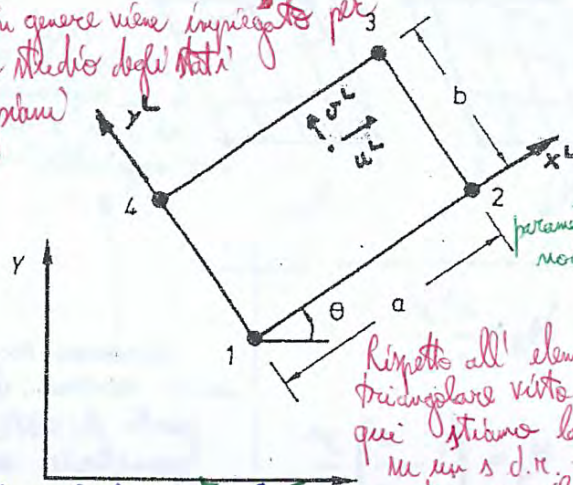 in genere viene impiegato per
studio degli stati
piani
3
b
y^L
v^L
u^L
x^L
4
2
Y
θ
a
1
Rispetto all'
triangolare visto
qui stiamo
su un s.d.r.